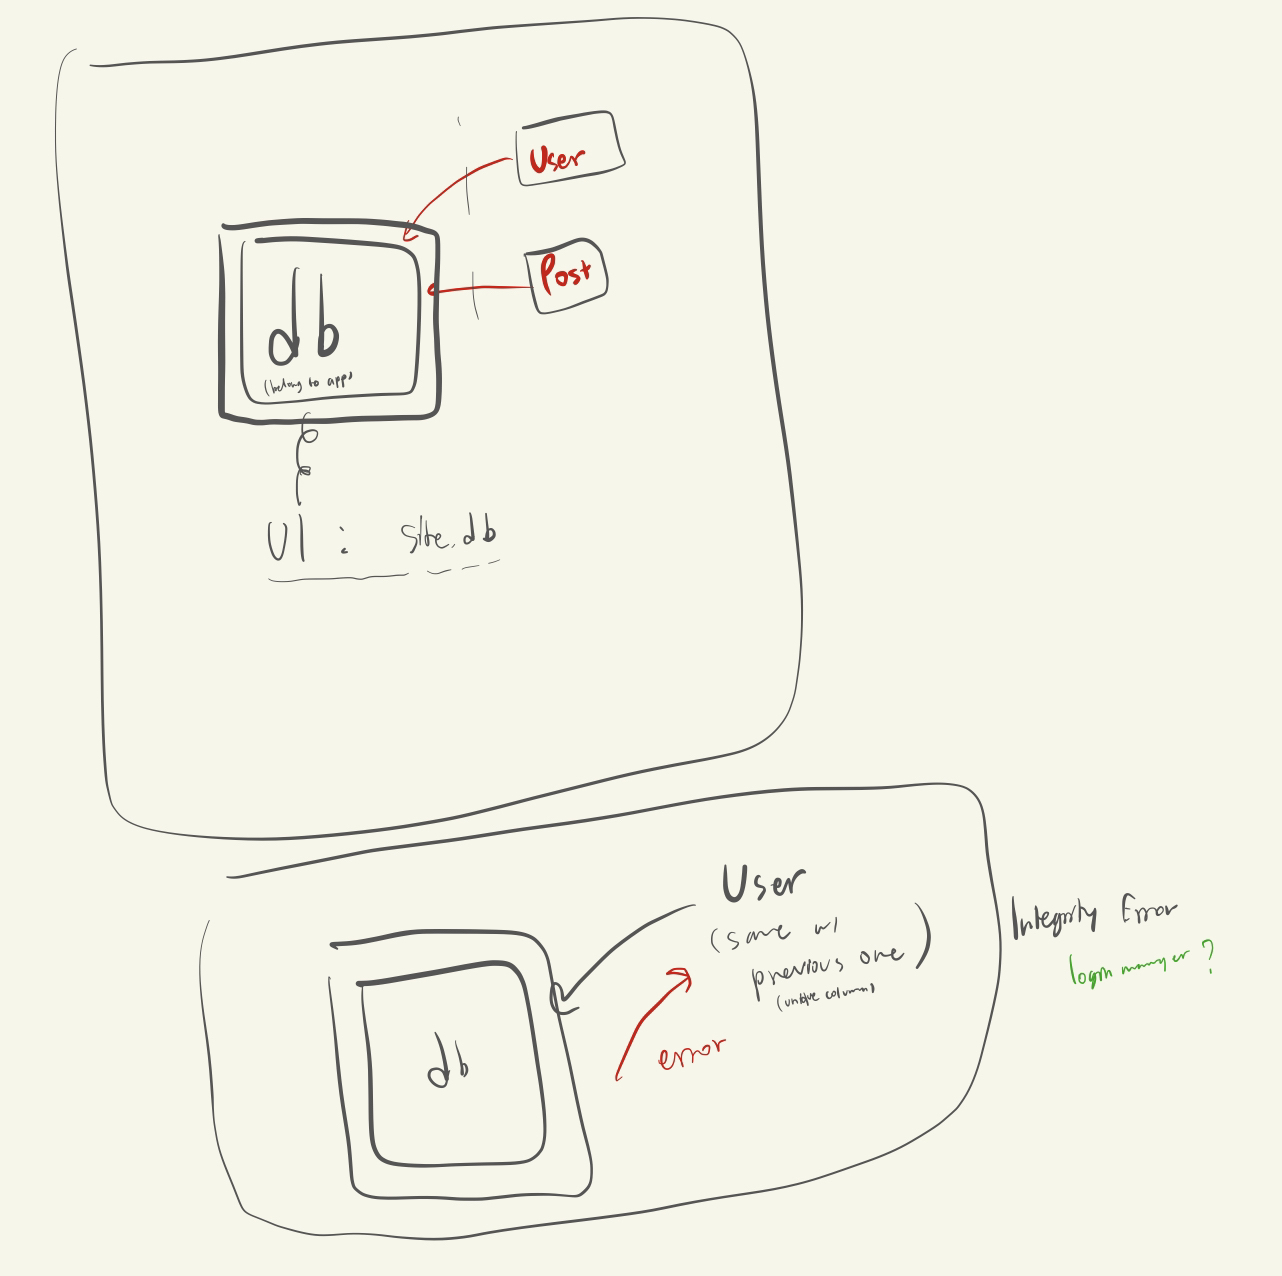 User
Post
db
(belong to app)
UI : site.db
User
(same w/
previous one)
(unique column)
error
db
Integrity Error
login manager ?